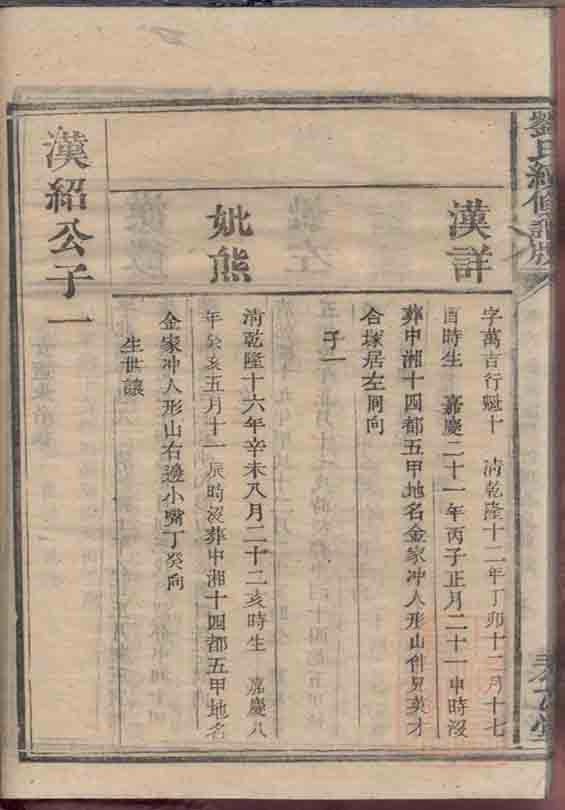 劉氏續修
漢詳
字萬吉行魁十 清乾隆十二年丁卯十二月十七
酉時生 嘉慶二十一年丙子正月二十一申時沒
葬中湘十四都五甲地名金家冲人形山傍兄英才
合塚居左同向
子一
妣熊
清乾隆十六年辛未八月二十二亥時生 嘉慶八
年癸亥五月十一辰時沒葬中湘十四都五甲地名
金家冲人形山右邊小嘴丁癸向
生世讓
漢紹公子一